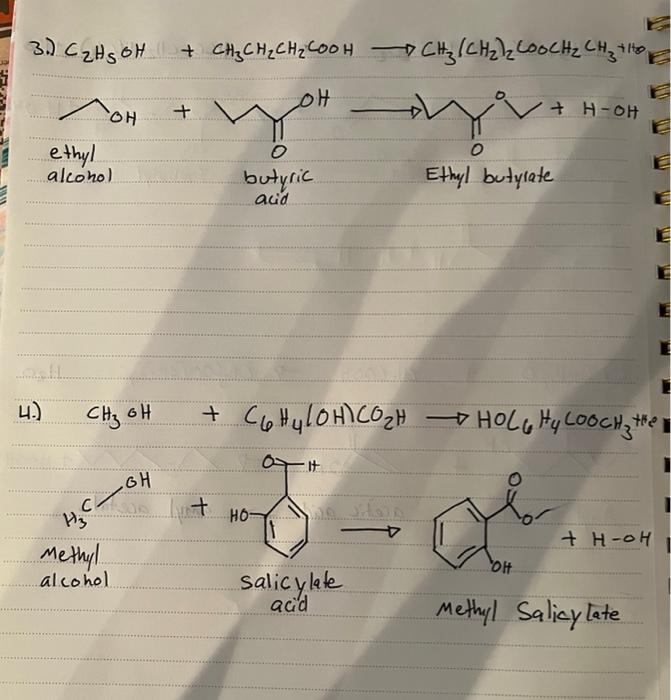 3.) C2H5OH + CH3CH2CH2COOH → CH3(CH2)2COOCH2CH3 + H2O
OH + OH O → O O + H-OH
ethyl alcohol butyric acid Ethyl butyrate
4.) CH3OH + C6H4(OH)CO2H → HOC6H4COOCH3
H3C OH + HO O H → O O OH + H-OH
Methyl alcohol Salicylate acid Methyl Salicylate